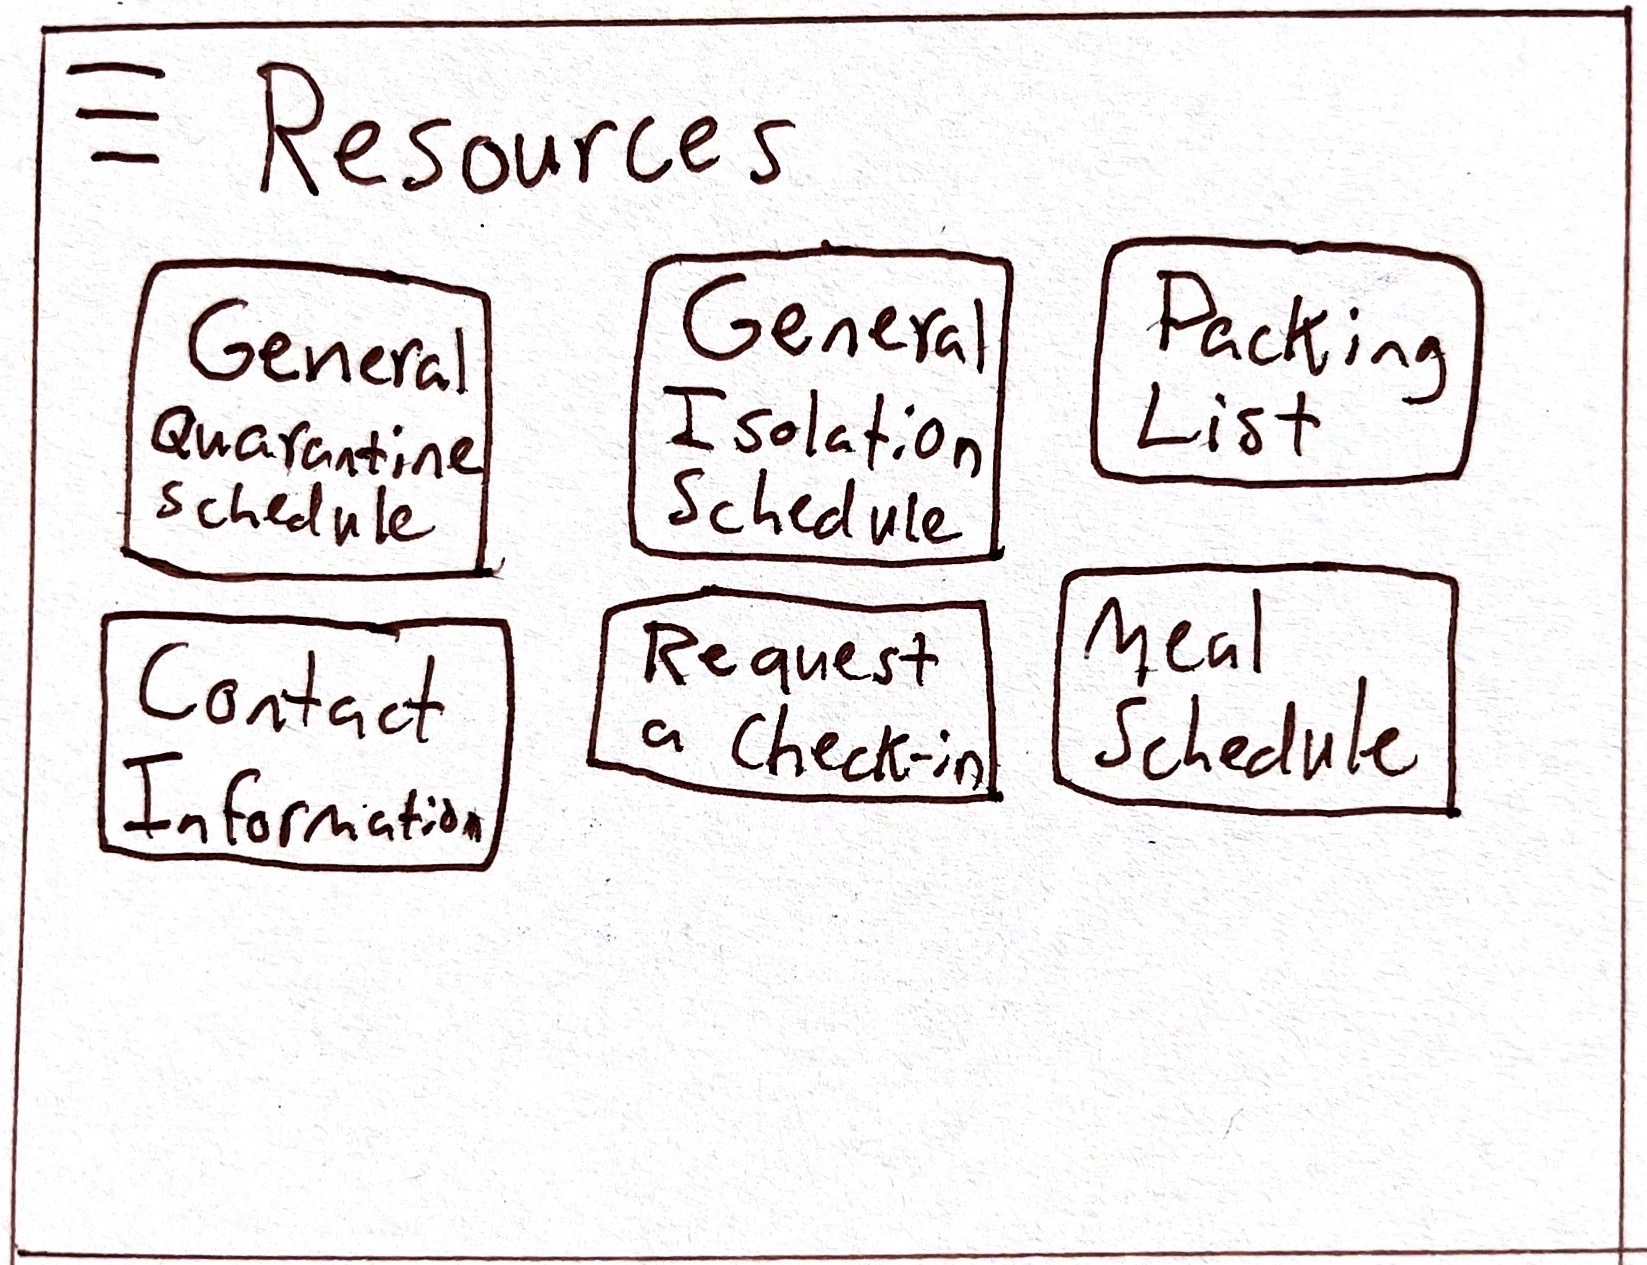 Resources
General
Quarantine
Schedule
General
Isolation
Schedule
Packing
List
Contact
Information
Request
a Check-in
Meal
Schedule